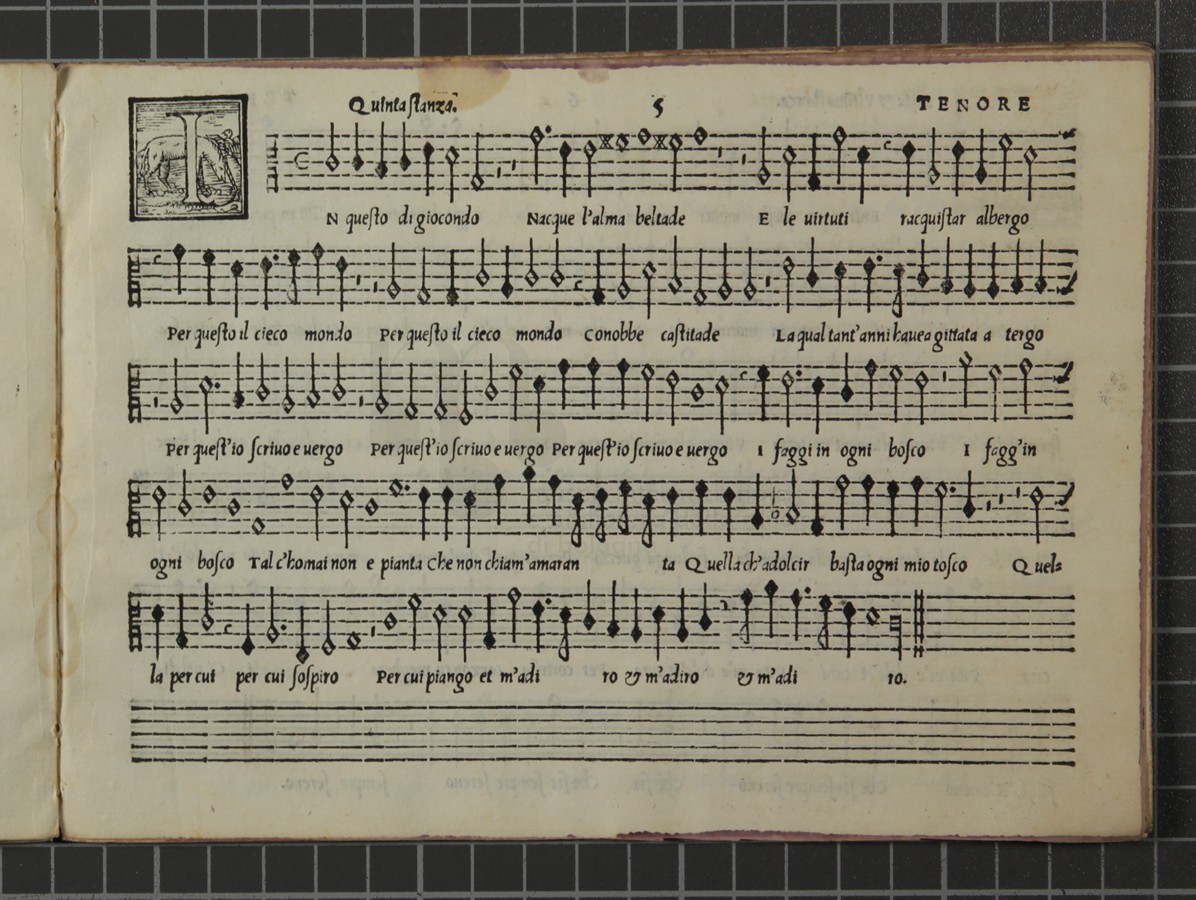 Quinta stanza. 5 TENORE
IN questo di giocondo Nacque l'alma beltade E le uirtuti racquistar albergo
Per questo il cieco mondo Per questo il cieco mondo Conobbe castitade La qual tant'anni hauea gittata a tergo
Per quest'io scriuo e uergo Per quest'io scriuo e uergo Per quest'io scriuo e uergo I faggi in ogni bosco I fagg'in
ogni bosco Tal c'homai non e pianta Che non chiam'amaran ta Quella ch'adolcir basta ogni mio tosco Quel=
la per cui per cui sospiro Per cui piango et m'adi ro & m'adiro & m'adi ro.